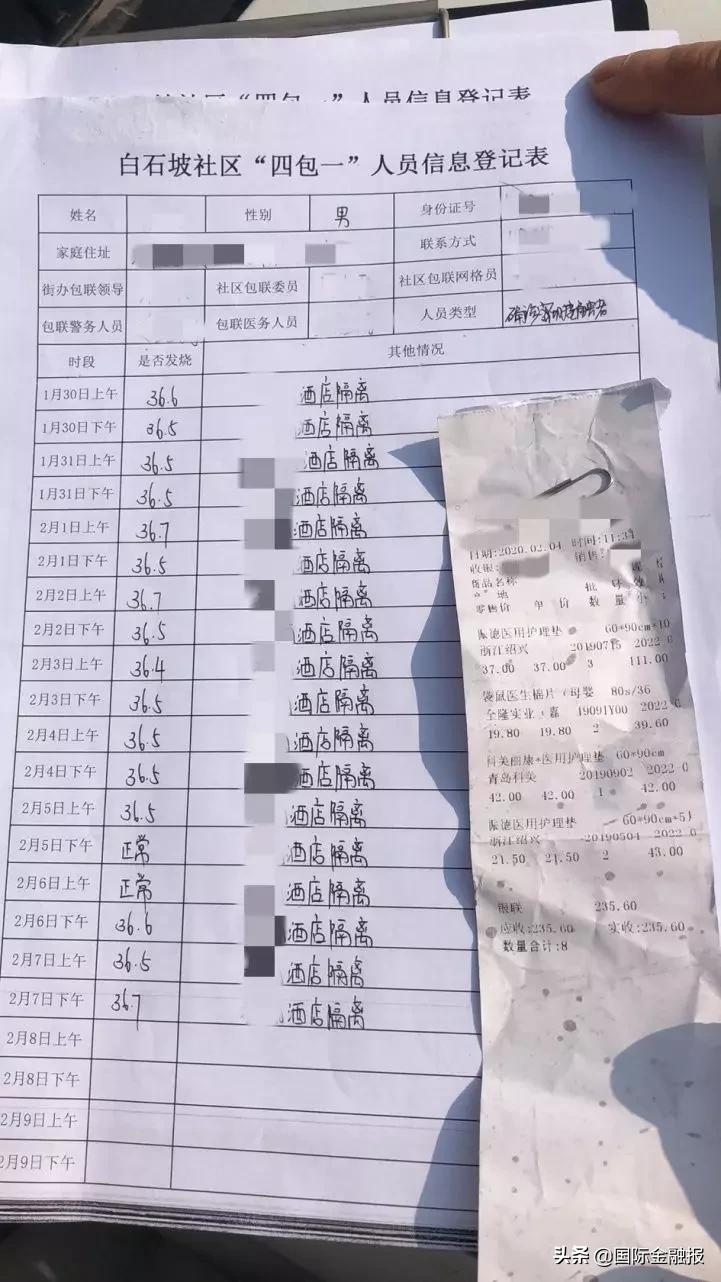 人员信息登记表
白石坡社区“四包一”人员信息登记表
姓名 性别 男 身份证号
家庭住址 联系方式
街办包联领导 社区包联委员 社区包联网格员
包联警务人员 包联医务人员 人员类型
时段 是否发烧 其他情况
1月30日上午 36.6 酒店隔离
1月30日下午 36.5 酒店隔离
1月31日上午 36.5 酒店隔离
1月31日下午 36.5 酒店隔离
2月1日上午 36.7 酒店隔离
2月1日下午 36.5 酒店隔离
2月2日上午 36.7 酒店隔离
2月2日下午 36.5 酒店隔离
2月3日上午 36.4 酒店隔离
2月3日下午 36.5 酒店隔离
2月4日上午 36.5 酒店隔离
2月4日下午 36.5 酒店隔离
2月5日上午 36.5 酒店隔离
2月5日下午 正常 酒店隔离
2月6日上午 正常 酒店隔离
2月6日下午 36.6 酒店隔离
2月7日上午 36.5 酒店隔离
2月7日下午 36.7 酒店隔离
2月8日上午
2月8日下午
2月9日上午
2月9日下午
日期:2020.02.04 时间:11:31
收银: 销售:
商品名称 批号
产地
零售价 单价 数量 小
振德医用护理垫 60*90cm*10
浙江绍兴 20190715 2022
37.00 37.00 3 111.00
袋鼠医生棉片(母婴 80s/36
全隆实业(嘉 19091Y00 2022
19.80 19.80 2 39.60
科美丽康*医用护理垫 60*90cm
青岛科美 20190902 2022
42.00 42.00 1 42.00
振德医用护理垫 60*90cm*5
浙江绍兴 20190504 2022
21.50 21.50 2 43.00
银联 235.60
应收:235.60 实收:235.60
数量合计:8
头条 @国际金融报